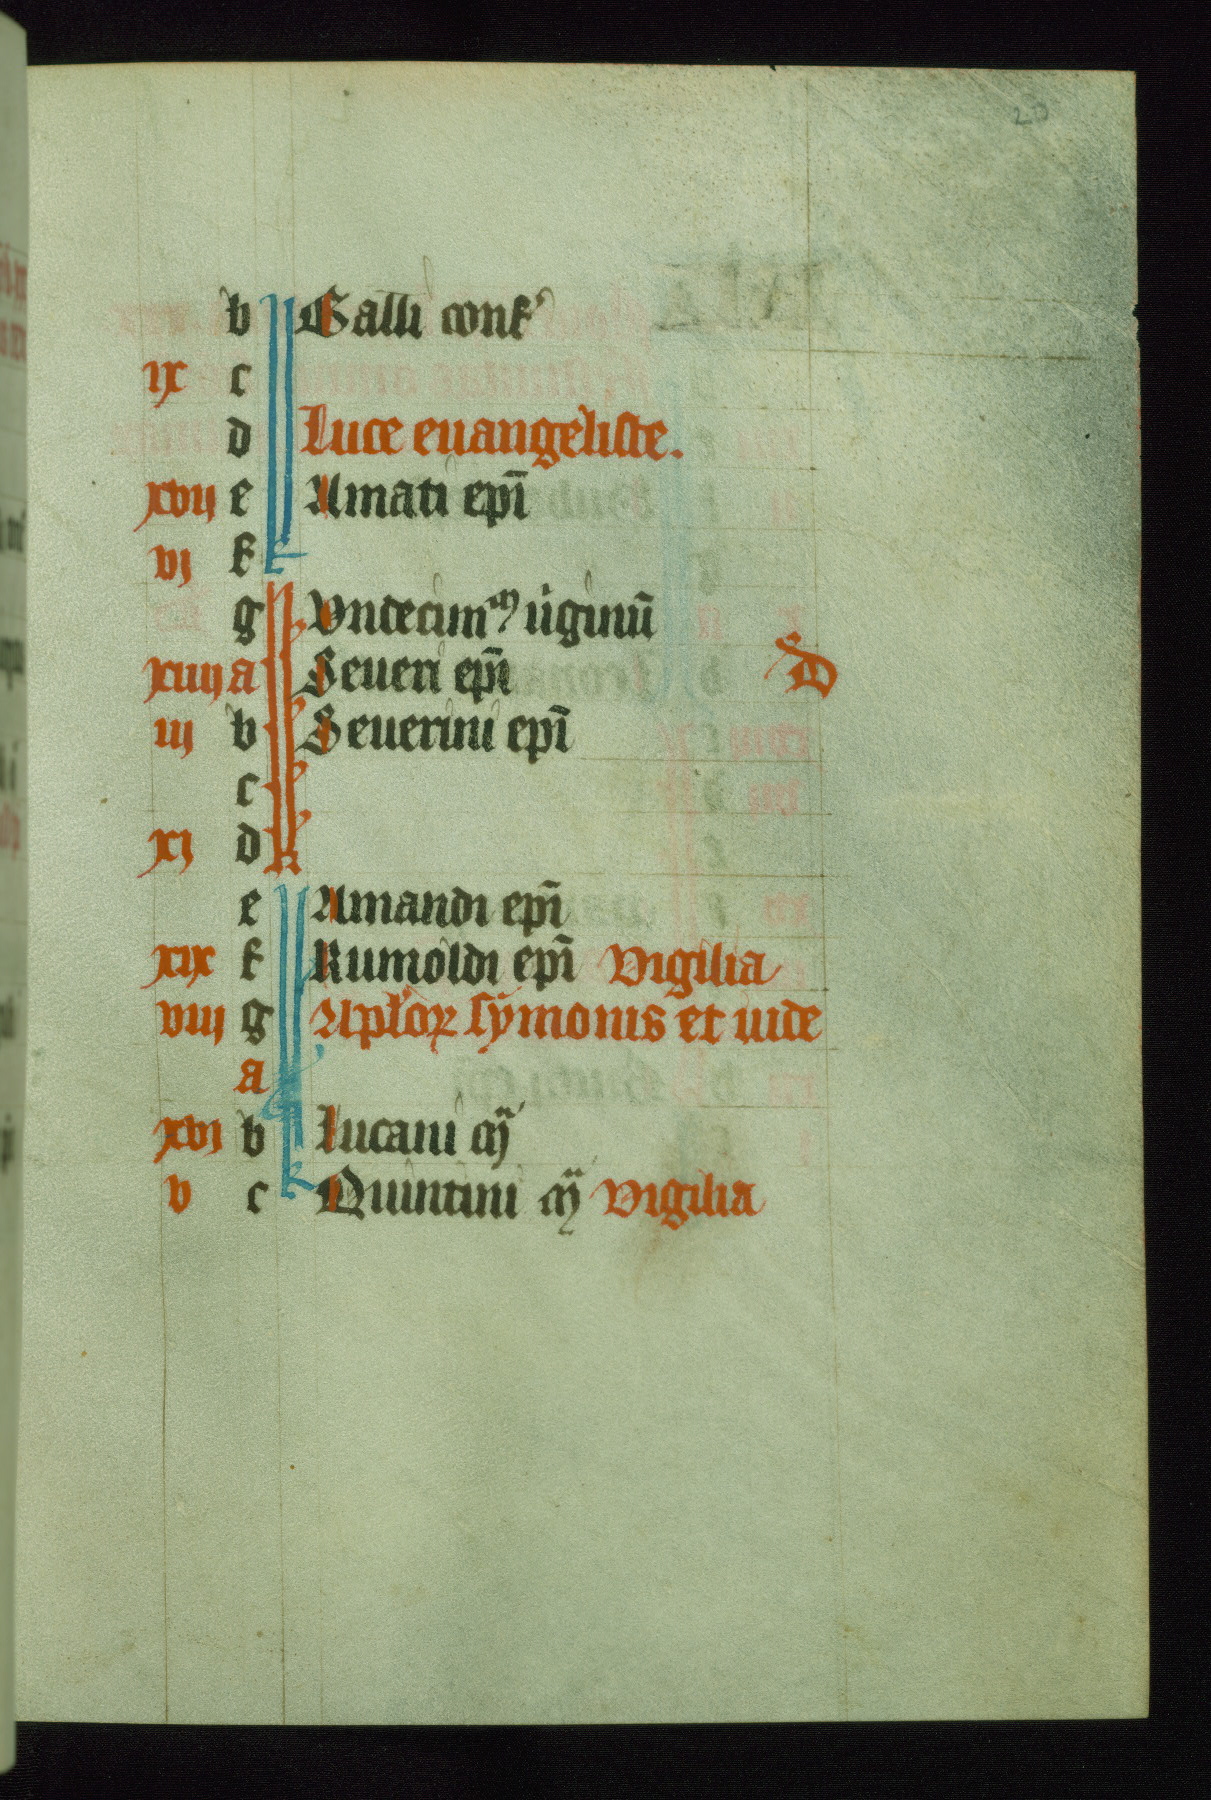 20
b Galli conf'
ix c
d Luce euangeliste.
xvij e Amati epī
vj f
g Vndecim m uginū
xiiij a Seueri epī D
iij b Seuerini epī
c
xj d
e Amandi epī
xix f Rumoldi epī Vigilia
viij g Aplo℞ symonis et iude
a
xvj b Lucani m̄
v c Quintini m̄ Vigilia